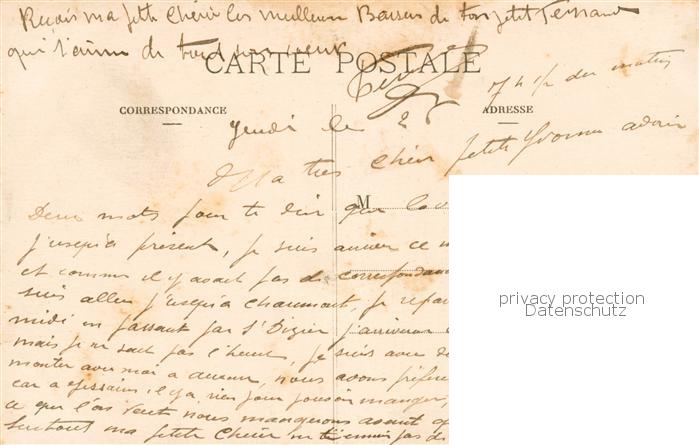 Reçois ma petite Chérie les meilleurs Baisers de ton petit Fernand
qui t'aime de tout son cœur
CARTE POSTALE
Fernand
7 h 1/2 du matin
CORRESPONDANCE
ADRESSE
Jeudi le 25
Ma très chère petite Yvonne adorée
M
Deux mots pour te dire que
j'usqu'à présent, je suis arriver ce
et comme il y avait pas de correspondance
suis aller j'usqu'a chaumont, je
midi en passant par St Dizier j'arriverai
mais je ne sait pas l'heure, je suis avec
monter avec moi a
nous avons
car a Jessains, il y a rien pour pouvoir manger,
ce que l'on veut nous mangerons avant
surtout ma petite Chérie ne t'ennuis pas
privacy protection
Datenschutz